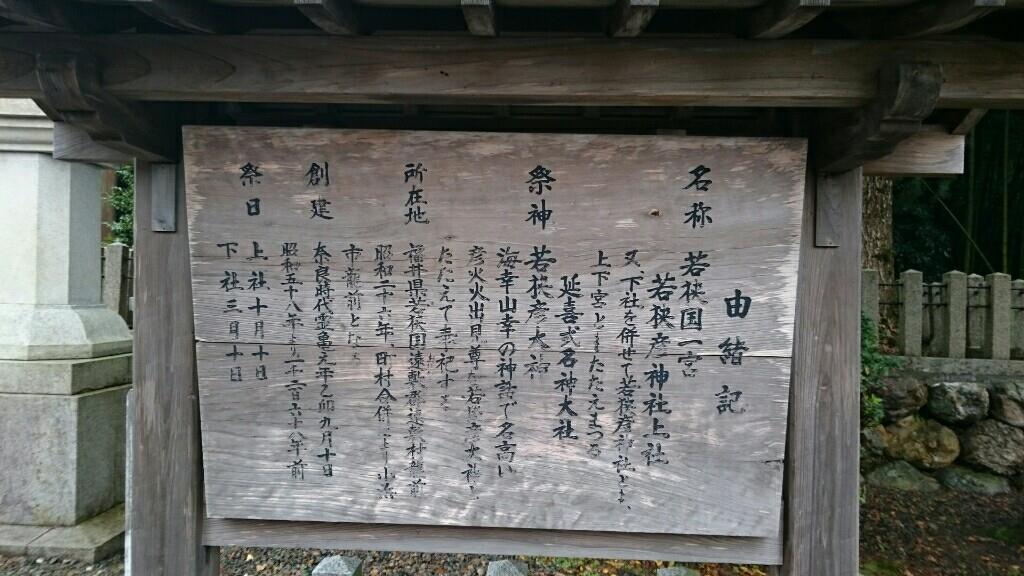 由緒記
名称 若狭国一宮
若狭彦神社上社
又下社を併せて若狭彦神社とも、
上下宮ともたたえまつる
延喜式名神大社
祭神 若狭彦大神
海幸山幸の神話で名高い
彦火火出見尊を若狭彦大神と
たたえて奉祀する
所在地 福井県若狭国遠敷郡遠敷村龍前
昭和二十六年、町村合併により小浜
市龍前となる
創建 奈良時代霊亀元年乙卯九月十日
昭和五十八年より一千二百六十八年前
祭日 上社十月十日
下社三月十日